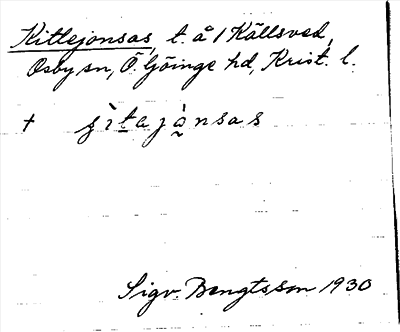 Kittejonsas, t. å 1 Källsved,
Osby sn, Ö. Göinge hd, Krist. l.
+ ʂìtajànsas
Sigv. Bengtsson 1930